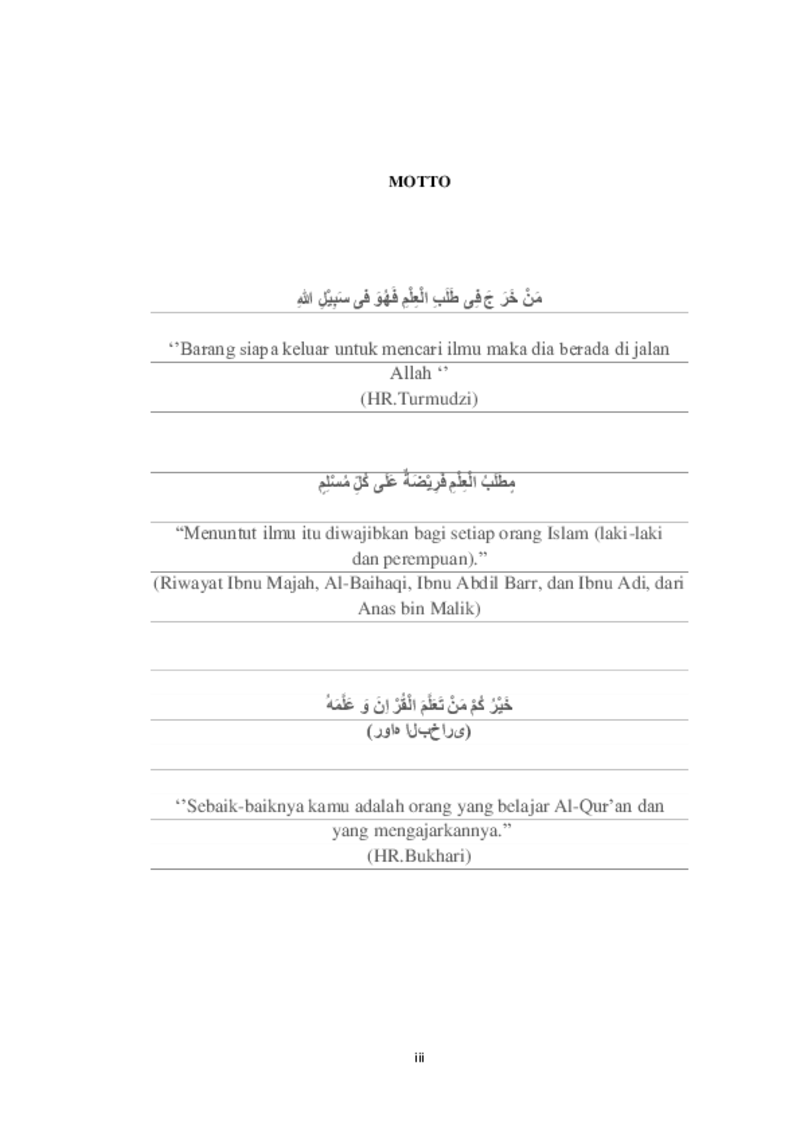 MOTTO
مَنْ خَرَ جَ فِى طَلَبِ الْعِلْمِ فَهُوَ فى سَبِيْلِ اللهِ
‘’Barang siapa keluar untuk mencari ilmu maka dia berada di jalan
Allah ‘’
(HR.Turmudzi)
مِطَلَبُ الْعِلْمِ فَرِيْضَةٌ عَلَى كُلِّ مُسْلِمٍ
“Menuntut ilmu itu diwajibkan bagi setiap orang Islam (laki-laki
dan perempuan).”
(Riwayat Ibnu Majah, Al-Baihaqi, Ibnu Abdil Barr, dan Ibnu Adi, dari
Anas bin Malik)
خَيْرُ كُمْ مَنْ تَعَلَّمَ الْقُرْ اِنَ وَ عَلَّمَهُ
(رواه البخارى)
‘’Sebaik-baiknya kamu adalah orang yang belajar Al-Qur’an dan
yang mengajarkannya.”
(HR.Bukhari)
iii